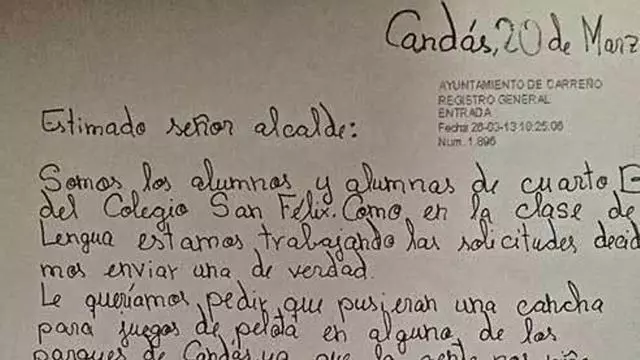 Candás, 20 de Marz
AYUNTAMIENTO DE CARREÑO
REGISTRO GENERAL
ENTRADA
Fecha 26-03-13 10:25:06
Num. 1.895
Estimado señor alcalde:
Somos los alumnos y alumnas de cuarto
del Colegio San Félix. Como, en la clase de
Lengua estamos trabajando las solicitudes decid
mos enviar una de verdad.
Le queríamos pedir que pusieran una cancha
para juegos de pelota en alguno de los
parques de Candás, ya que la gente nos